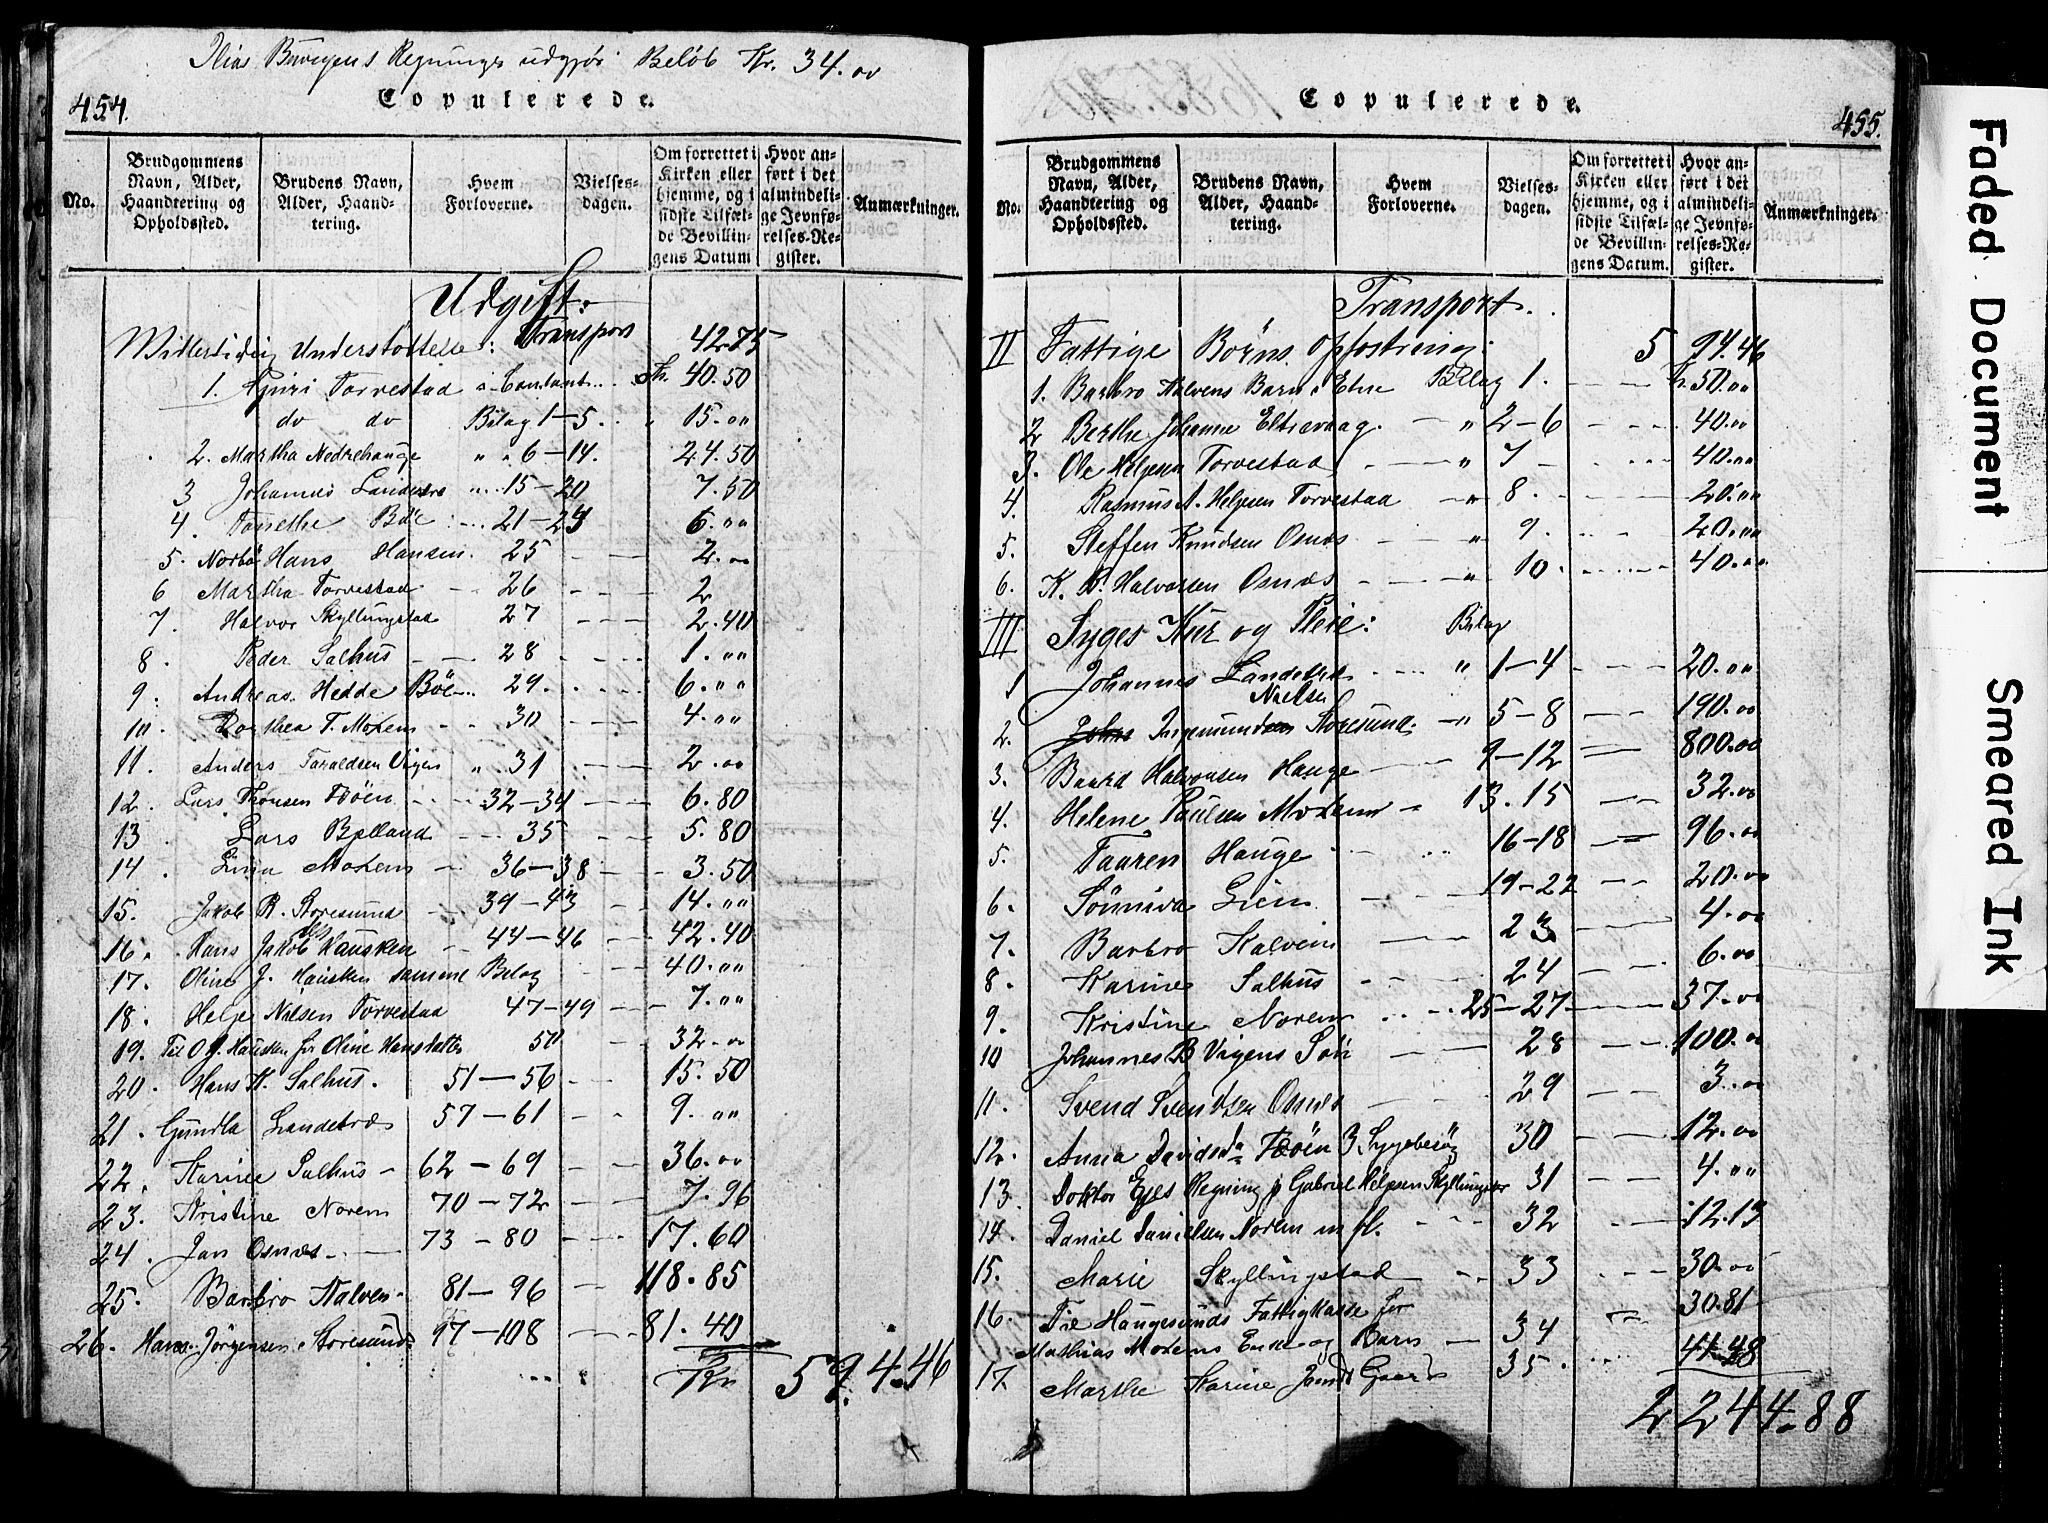 Elias Bivegens Regnings udgjør Beløb Kr. 34.00
454.
Copulerede.
No.
Brudgommens Navn, Alder, Haandtering og Opholdssted.
Brudens Navn, Alder, Haandtering.
Hvem Forloverne.
Vielsesdagen.
Om forrettet i Kirken eller hjemme, og i sidste Tilfælde Bevillingens Datum
Hvor anført i det almindelige Jevnførelses-Register.
Anmærkninger.
Udgift:
Midlertidig Understøttelse: Transport 42.75
1. Guri Torvestad i Contant. 40.50
do do Bilag 1-5. " 15."
2. Martha Nedrehauge " " 6-14. 24.50
3 Johannes Landeraa " 15-20 7.50
4. Tarethe Böe 21-24 6.""
5. Norbö Hans Hansen 25 2.00
6 Martha Torvestad 26 2
7. Halvor Skyllingstad 27 2.40
8. Peder Salhus 28 1.""
9. Andreas Hedde Böe 29. 6.""
10. Dorthea T. Moxem 30 4.""
11. Anders Taraldsen Vigen " 31 2.00
12. Lars Thorsen Böen 32-34 6.80
13 Lars Bjelland 35 5.80
14. Lina Moxem 36-38 3.50
15. Jakob R. Storesund 39-43 14.""
16. Hans Jakob Hausken 44-46 42.40
17. Oline J. Hausken samme Bilag 40.""
18. Helge Nilsen Torvestad 47-49 7.""
19. Til O J. Hausken for Oline Hansdatter 50 32.00
20. Hans K. Salhus. 51-56 15.50
21. Gundla Landeraas 57-61 9.""
22. Karine Salhus 62-69 36.00
23. Kristine Norem 70-72 7.96
24. Jan Osnæs 73-80 17.60
25. Barbro Kalven 81-96 118.85
26. Hans Jörgensen Storesund 97-108 81.40
Kr 594.46
455.
Copulerede.
No.
Brudgommens Navn, Alder, Haandtering og Opholdssted.
Brudens Navn, Alder, Haandtering.
Hvem Forloverne.
Vielsesdagen.
Om forrettet i Kirken eller hjemme, og i sidste Tilfælde Bevillingens Datum.
Hvor anført i det almindelige Jevnførelses-Register.
Anmærkninger.
Transport. 5 94.46
II Fattige Börns Opfostring:
1. Barbro Kalvens Barn i Etne Bilag 1. 50.00
2 Berthe Johanne Eltravaag. " 2-6 40.00
3. Ole Helgesen Torvestad " 7 40.00
4. Rasmus A. Helgesen Torvestad " 8. 20.00
5. Steffen Knudsen Osnæs " 9. 20.00
6. K. B. Halvorsen Osnæs " 10. 40.00
III Syges Kur og Pleie: Bilag
1 Johannes Landeraa " 1-4 20.00
2. Ingemund Nielsen Storesund. " 5-8 190.00
3. Baard Halvorsen Hauge 9-12 800.00
4. Helene Paulsen Moxem 13.15 32.00
5. Taaren Hauge 16-18 96.00
6. Sönniva Liem 19-22 20.00
7. Barbro Kalvein 23 4.00
8. Karine Salhus 24 6.00
9. Kristine Norem 25-27 37.00
10 Johannes B Vigens Sön 28 100.00
11. Svend Svendsen Osnæs 29 3.00
12. Anna Davidsda Böen 3 Sygebesög 30 12.00
13. Doktor Ejes Regning p Gabriel Helgesen Skyllingstad 31 4.""
14. Daniel Danielsen Norem m fl. 32 12.13
15. Marie Skyllingstad 33 30.00
16. Til Haugesunds Fattigkasse for
Mathias Moxems Enke og Barn 34 30.81
17. Marthe Karine Jonsd Gaard 35. 41.48
2 244.88
Faded Document
Smeared Ink